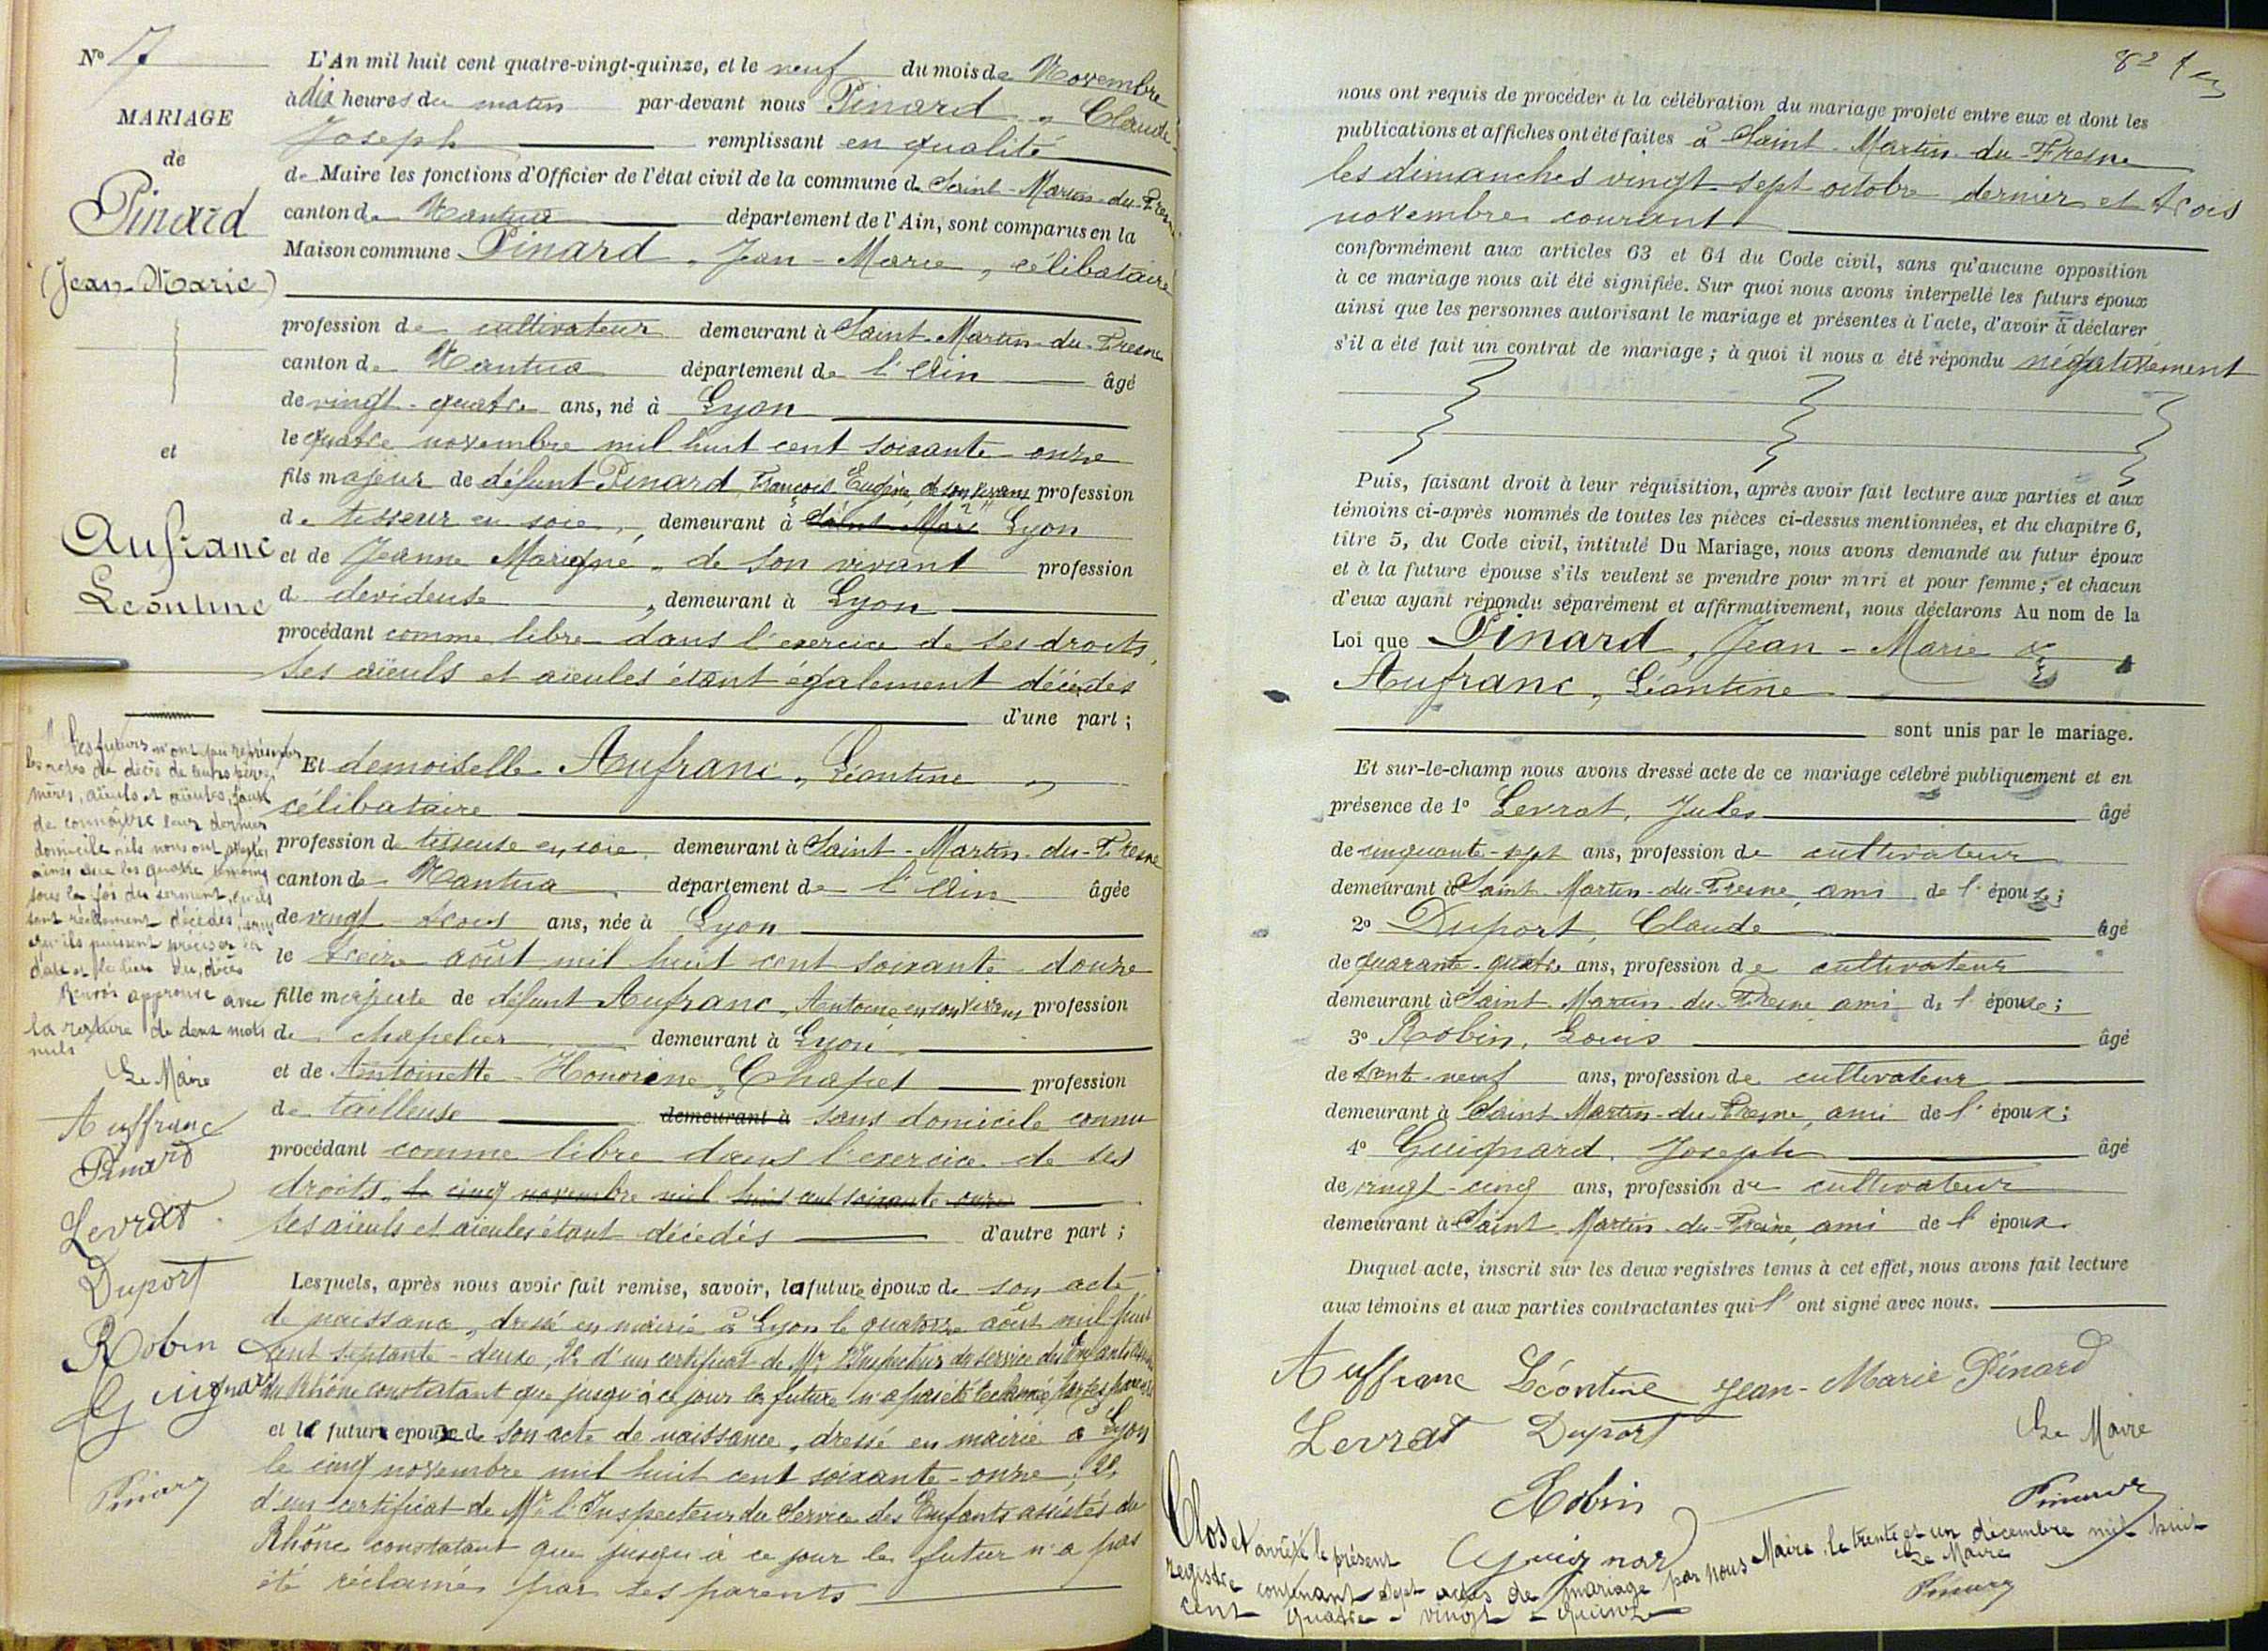 N° 7
MARIAGE
de
Pinard
(Jean-Marie)
et
Aufranc
Léontine
L'An mil huit cent quatre-vingt-quinze, et le neuf du mois de Novembre
à dix heures du matin par-devant nous Pinard, Claude-
Joseph remplissant en qualité
de Maire les fonctions d'Officier de l'état civil de la commune de Saint-Martin-du-Fresne
canton de Nantua département de l'Ain, sont comparus en la
Maison commune Pinard, Jean-Marie, célibataire
profession de cultivateur demeurant à Saint-Martin-du-Fresne
canton de Nantua département de l'Ain âgé
de vingt-quatre ans, né à Lyon
le quatre novembre mil huit cent soixante-onze
fils majeur de défunt Pinard, François Eugène, de son vivant profession
de tisseur en soie, demeurant à Saint-Mar Lyon
et de Jeanne Marigné, de son vivant profession
d devideuse, demeurant à Lyon
procédant comme libre dans l'exercice de ses droits,
ses aïeuls et aïeules étant également décédés
d'une part;
Et demoiselle Aufranc, Léontine,
célibataire
profession de tisseuse en soie demeurant à Saint-Martin-du-Fresne
canton de Nantua département de l'Ain âgée
de vingt-trois ans, née à Lyon
le treize août mil huit cent soixante-douze
fille majeure de défunt Aufranc, Antoine en son vivant profession
de chapelier demeurant à Lyon
et de Antoinette-Honorine Chapet profession
de tailleuse demeurant à sans domicile connu
procédant comme libre dans l'exercice de ses
droits, le cinq novembre mil huit cent soixante-onze
ses aïeuls et aïeules étant décédés d'autre part;
Lesquels, après nous avoir fait remise, savoir, la future épouse de son acte
de naissance, dressé en mairie à Lyon le quatorze août mil huit
cent septante-deux, 2° d'un certificat de Mr l'Inspecteur du service des Enfants assistés
du Rhône constatant que jusqu'à ce jour la future n'a pas été réclamée par ses parents
et le futur époux de son acte de naissance, dressé en mairie à Lyon
le cinq novembre mil huit cent soixante-onze; 2°
d'un certificat de Mr l'Inspecteur du Service des Enfants assistés du
Rhône constatant que jusqu'à ce jour le futur n'a pas
été réclamé par ses parents
Les futurs n'ont pu représenter
les actes de décès de leurs pères,
mères, aïeuls et aïeules, faute
de connaître leur dernier
domicile, ils nous ont attesté
ainsi que les quatre témoins
sous la foi du serment, qu'ils
sont réellement décédés, sans
qu'ils puissent préciser la
date et le lieu du décès
Renvoi approuvé avec
la rature de deux mots
nuls
Le Maire
Auffranc
Pinard
Levrat
Duport
Robin
Guignard
Pinard
82
nous ont requis de procéder à la célébration du mariage projeté entre eux et dont les
publications et affiches ont été faites à Saint-Martin-du-Fresne
les dimanches vingt-sept octobre dernier et trois
novembre courant
conformément aux articles 63 et 64 du Code civil, sans qu'aucune opposition
à ce mariage nous ait été signifiée. Sur quoi nous avons interpellé les futurs époux
ainsi que les personnes autorisant le mariage et présentes à l'acte, d'avoir à déclarer
s'il a été fait un contrat de mariage; à quoi il nous a été répondu négativement
Puis, faisant droit à leur réquisition, après avoir fait lecture aux parties et aux
témoins ci-après nommés de toutes les pièces ci-dessus mentionnées, et du chapitre 6,
titre 5, du Code civil, intitulé Du Mariage, nous avons demandé au futur époux
et à la future épouse s'ils veulent se prendre pour mari et pour femme; et chacun
d'eux ayant répondu séparément et affirmativement, nous déclarons Au nom de la
Loi que Pinard, Jean-Marie &
Aufranc, Léontine
sont unis par le mariage.
Et sur-le-champ nous avons dressé acte de ce mariage célébré publiquement et en
présence de 1° Levrat, Jules âgé
de cinquante-sept ans, profession de cultivateur
demeurant à Saint-Martin-du-Fresne, ami de l'épouse;
2° Duport, Claude âgé
de quarante-quatre ans, profession de cultivateur
demeurant à Saint-Martin-du-Fresne ami de l'épouse;
3° Robin, Louis âgé
de trente-neuf ans, profession de cultivateur
demeurant à Saint-Martin-du-Fresne, ami de l'époux;
4° Guignard, Joseph âgé
de vingt-cinq ans, profession de cultivateur
demeurant à Saint-Martin-du-Fresne, ami de l'époux.
Duquel acte, inscrit sur les deux registres tenus à cet effet, nous avons fait lecture
aux témoins et aux parties contractantes qui l'ont signé avec nous.
Auffranc Léontine Jean-Marie Pinard
Levrat Duport Le Maire
Robin Pinard
Guignard
Clos et arrêté le présent
registre contenant sept actes de mariage par nous Maire le trente et un décembre mil huit
cent quatre-vingt-quinze
Le Maire
Pinard